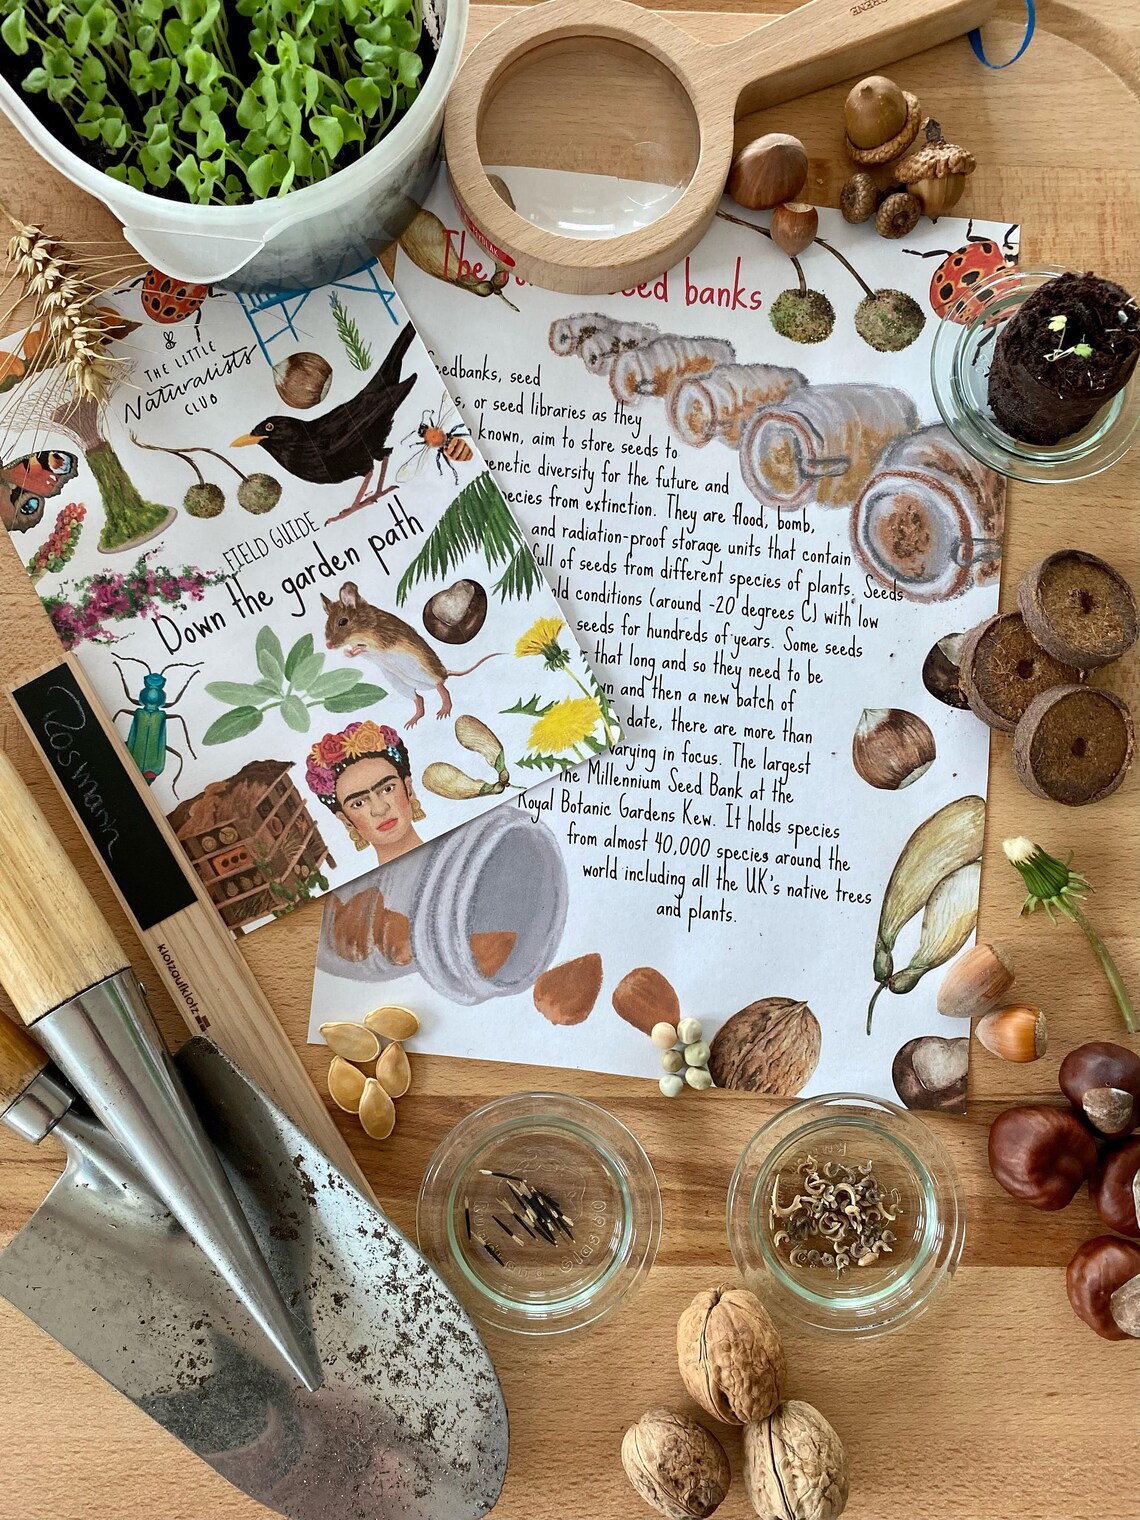 THE LITTLE
Naturalists
CLUB
FIELD GUIDE
Down the garden path
The seed banks
seed
or seed libraries as they
known, aim to store seeds to
genetic diversity for the future and
species from extinction. They are flood, bomb,
and radiation-proof storage units that contain
full of seeds from different species of plants. Seeds
conditions (around -20 degrees C) with low
seeds for hundreds of years. Some seeds
that long and so they need to be
and then a new batch of
date, there are more than
varying in focus. The largest
the Millennium Seed Bank at the
Royal Botanic Gardens Kew. It holds species
from almost 40,000 species around the
world including all the UK's native trees
and plants.
Rosmarin
klotzaufklotz